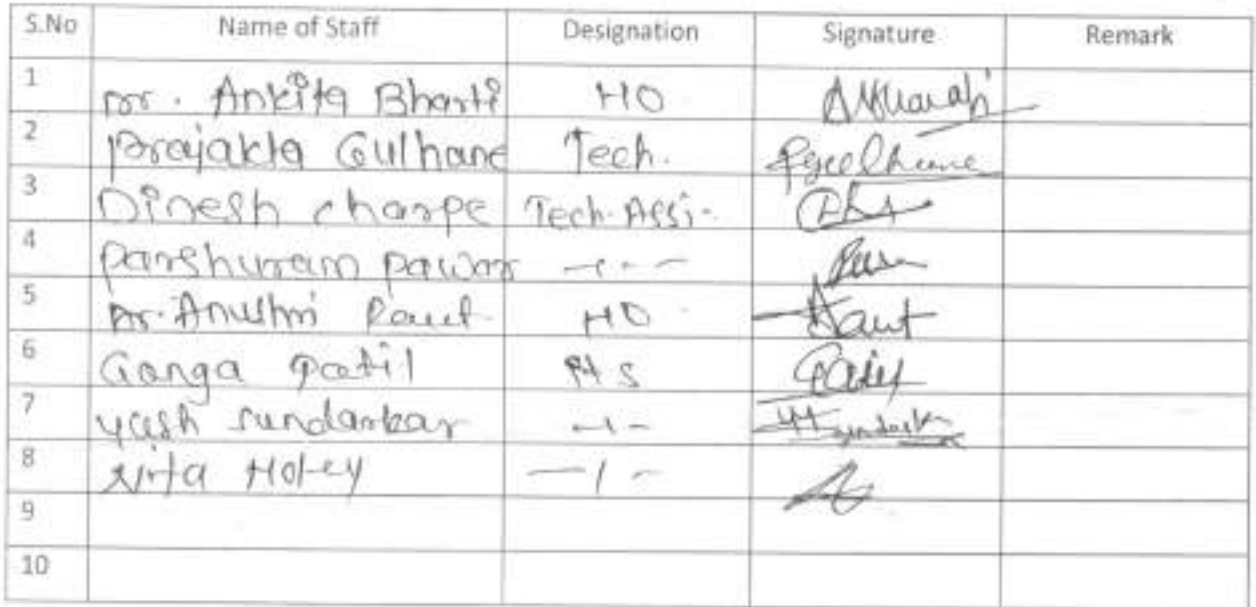 S.No Name of Staff Designation Signature Remark
1 Dr. Ankita Bharti HO
2 Prajakta Gulhane Tech. Pgulhane
3 Dinesh charpe Tech. Assi-
4 Parshuram pawar -ı--
5 Dr. Anushri Raut HO Raut
6 Ganga Patil Patil
7 Yash sundarkar -ı-
8 Nita Holey -ı-
9
10